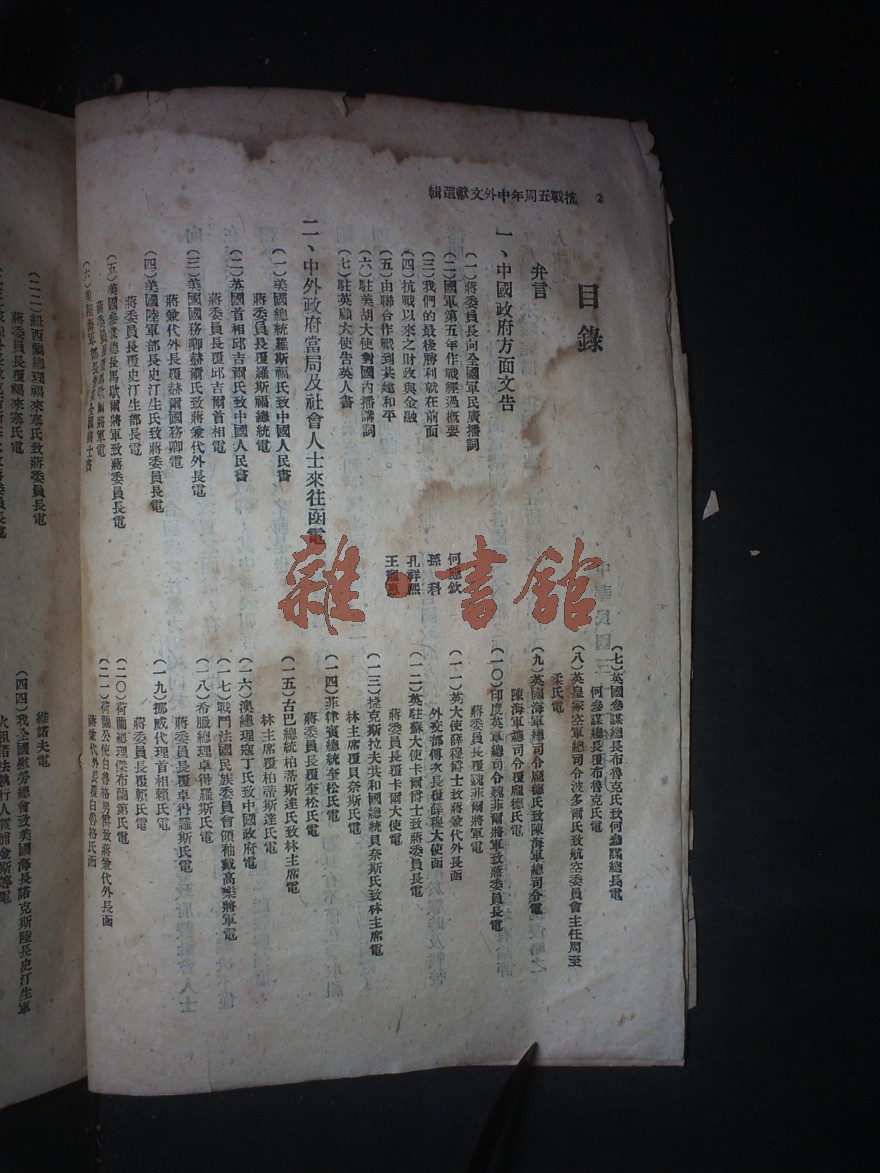 2 抗戰五周年中外文獻選輯
目錄
弁言
一、中國政府方面文告
(一)蔣委員長向全國軍民廣播詞
(二)國軍第五年作戰經過概要
何應欽
(三)我們的最後勝利就在前面
孫 科
(四)抗戰以來之財政與金融
孔祥熙
(五)由聯合作戰到共建和平
王寵惠
(六)駐美胡大使對國內播講詞
(七)駐英顧大使告英人書
二、中外政府當局及社會人士來往函電
(一)美國總統羅斯福氏致中國人民書
蔣委員長覆羅斯福總統電
(二)英國首相邱吉爾氏致中國人民書
蔣委員長覆邱吉爾首相電
(三)美國國務卿赫爾氏致蔣兼代外長電
蔣兼代外長覆赫爾國務卿電
(四)美國陸軍部長史汀生氏致蔣委員長電
蔣委員長覆史汀生部長電
(五)美國參謀總長馬歇爾將軍致蔣委員長電
蔣委員長覆馬歇爾將軍電
(六)
(七)英國參謀總長布魯克氏致何參謀總長電
何參謀總長覆布魯克氏電
(八)英皇家空軍總司令波多爾氏致航空委員會主任周至
柔氏電
(九)英國海軍總司令龐德氏致陳海軍總司令電
陳海軍總司令覆龐德氏電
(一〇)印度英軍總司令魏菲爾將軍致蔣委員長電
蔣委員長覆魏菲爾將軍電
(一一)英大使薛穆爵士致蔣兼代外長函
外交部傅次長覆薛穆大使函
(一二)英駐蘇大使卡爾爵士致蔣委員長電
蔣委員長覆卡爾大使電
(一三)捷克斯拉夫共和國總統貝奈斯氏致林主席電
林主席覆貝奈斯氏電
(一四)菲律賓總統奎松氏電
蔣委員長覆奎松氏電
(一五)古巴總統柏蒂斯達氏致林主席電
林主席覆柏蒂斯達氏電
(一六)澳總理寇丁氏致中國政府電
(一七)戰鬥法國民族委員會領袖戴高樂將軍電
(一八)希臘總理卓得羅斯氏電
蔣委員長覆卓得羅斯氏電
(一九)挪威代理首相賴氏電
蔣委員長覆賴氏電
(二〇)荷蘭總理傑布蘭第氏電
(二一)荷蘭公使白魯格男爵致蔣兼代外長函
蔣兼代外長覆白魯格氏函
(二二)紐西蘭總理福來塞氏致蔣委員長電
蔣委員長覆福來塞氏電
維諾夫電
(四四)我全國慰勞總會致美國海長諾克斯陸長史汀生軍
雜·書館